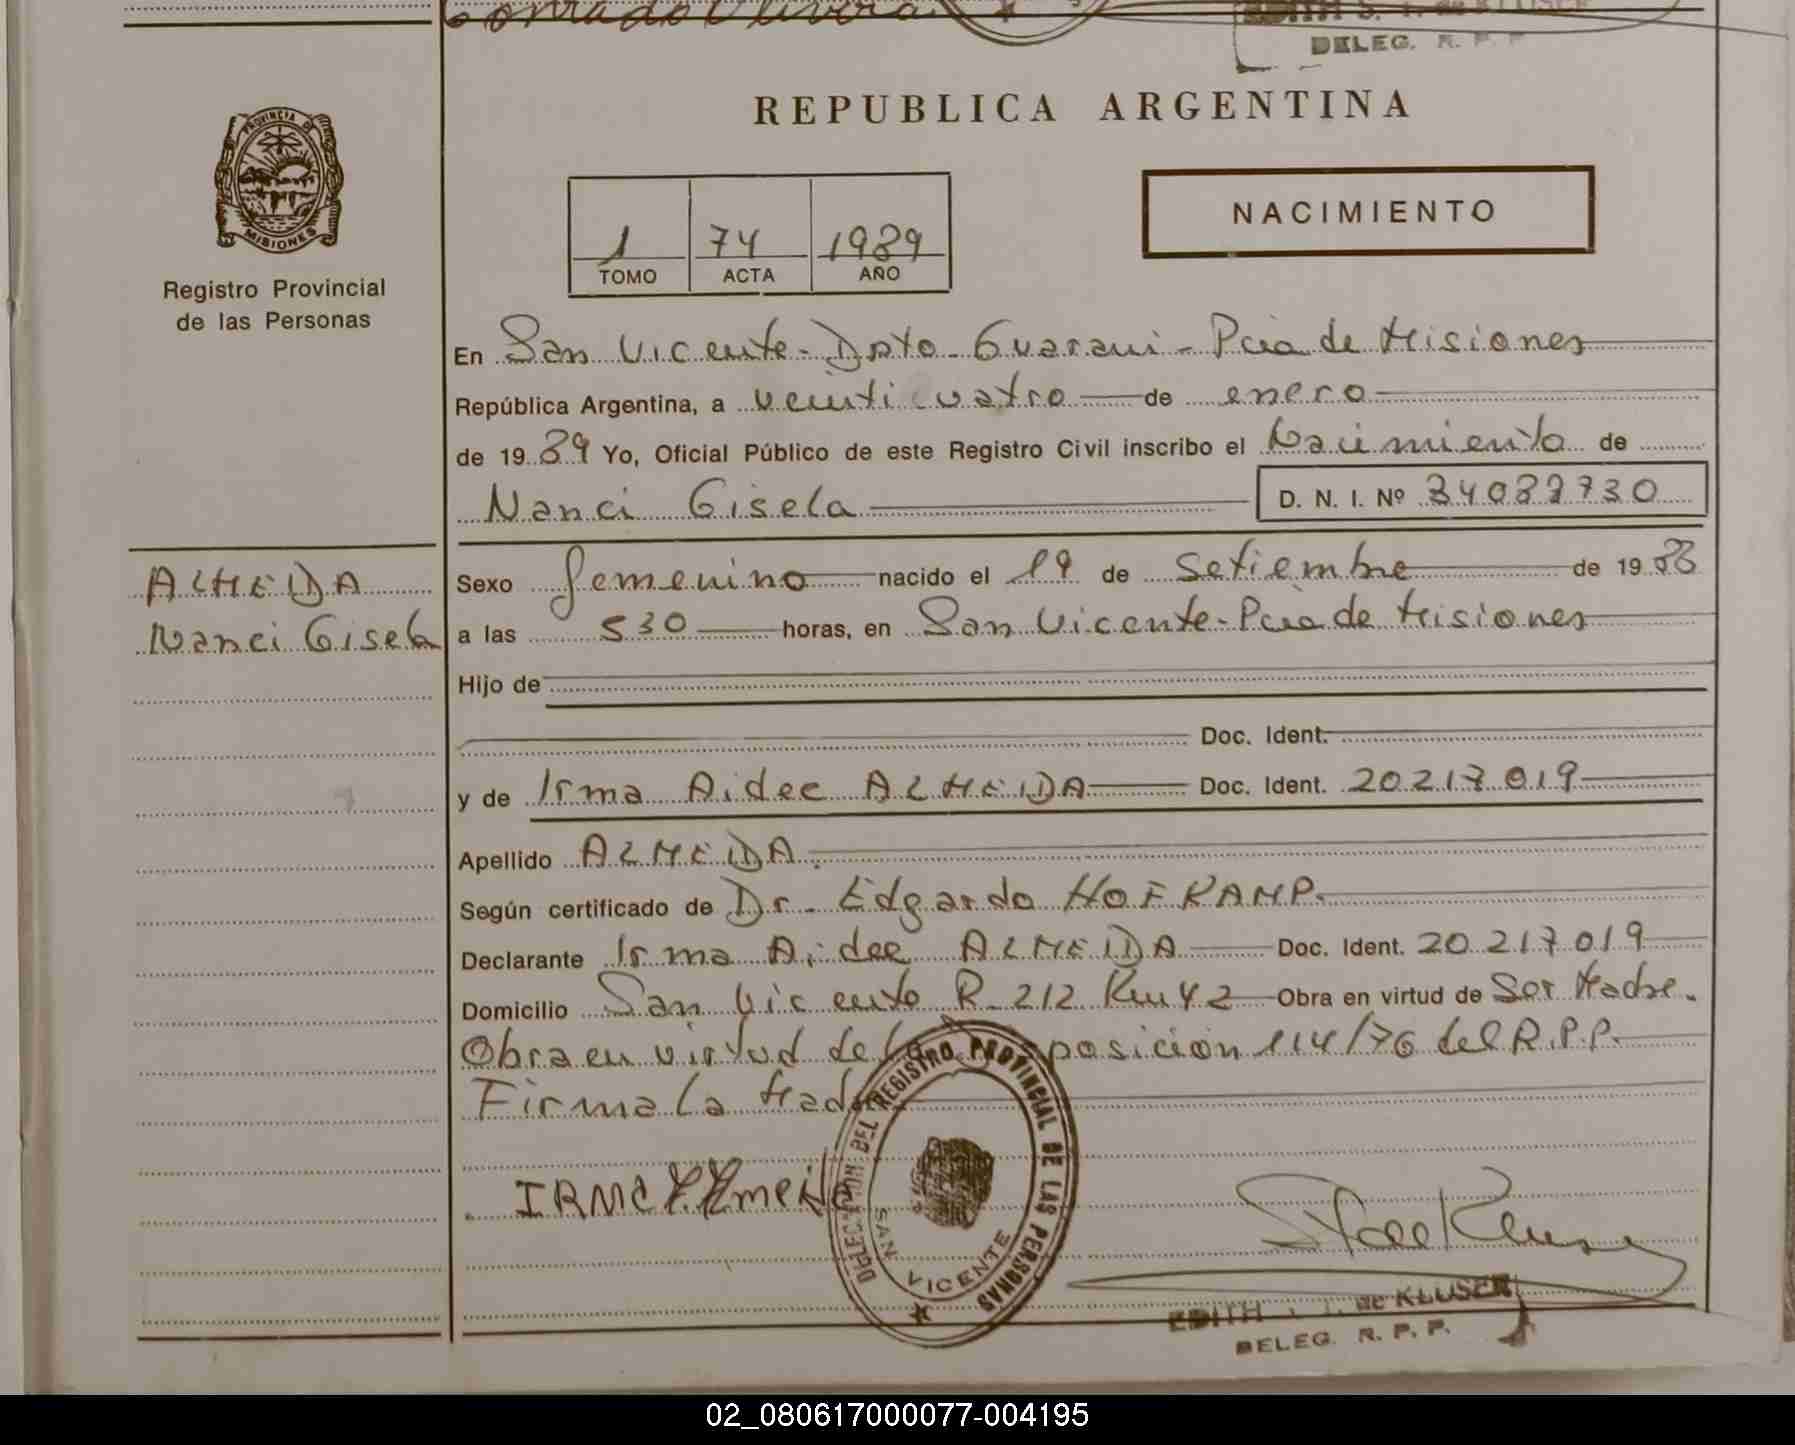 DELEG. R. P. P
REPUBLICA ARGENTINA
PROVINCIA DE
MISIONES
Registro Provincial
de las Personas
NACIMIENTO
1 74 1989
TOMO ACTA AÑO
En San Vicente - Dpto - Guarani - Pcia de Misiones
República Argentina, a veinticuatro de enero
de 1989 Yo, Oficial Público de este Registro Civil inscribo el Nacimiento de
Nanci Gisela D. N. I. Nº 34087730
ALMEIDA
Nanci Gisela
Sexo femenino nacido el 19 de Setiembre de 1988
a las 530 horas, en San Vicente - Pcia de Misiones
Hijo de
Doc. Ident.
y de Irma Aidee ALMEIDA Doc. Ident. 20.217.019
Apellido ALMEIDA.
Según certificado de Dr. Edgardo HOFKAMP.
Declarante Irma Aidee ALMEIDA Doc. Ident. 20.217.019
Domicilio San Vicente R. 212 Km 42 Obra en virtud de Ser Madre.
Obra en virtud de la posición 114/76 del R.P.P.
Firma la Madre
DELEGACION DEL REGISTRO PROVINCIAL DE LAS PERSONAS
SAN VICENTE
EDITH de KLUSER
DELEG. R. P. P.
02_080617000077-004195